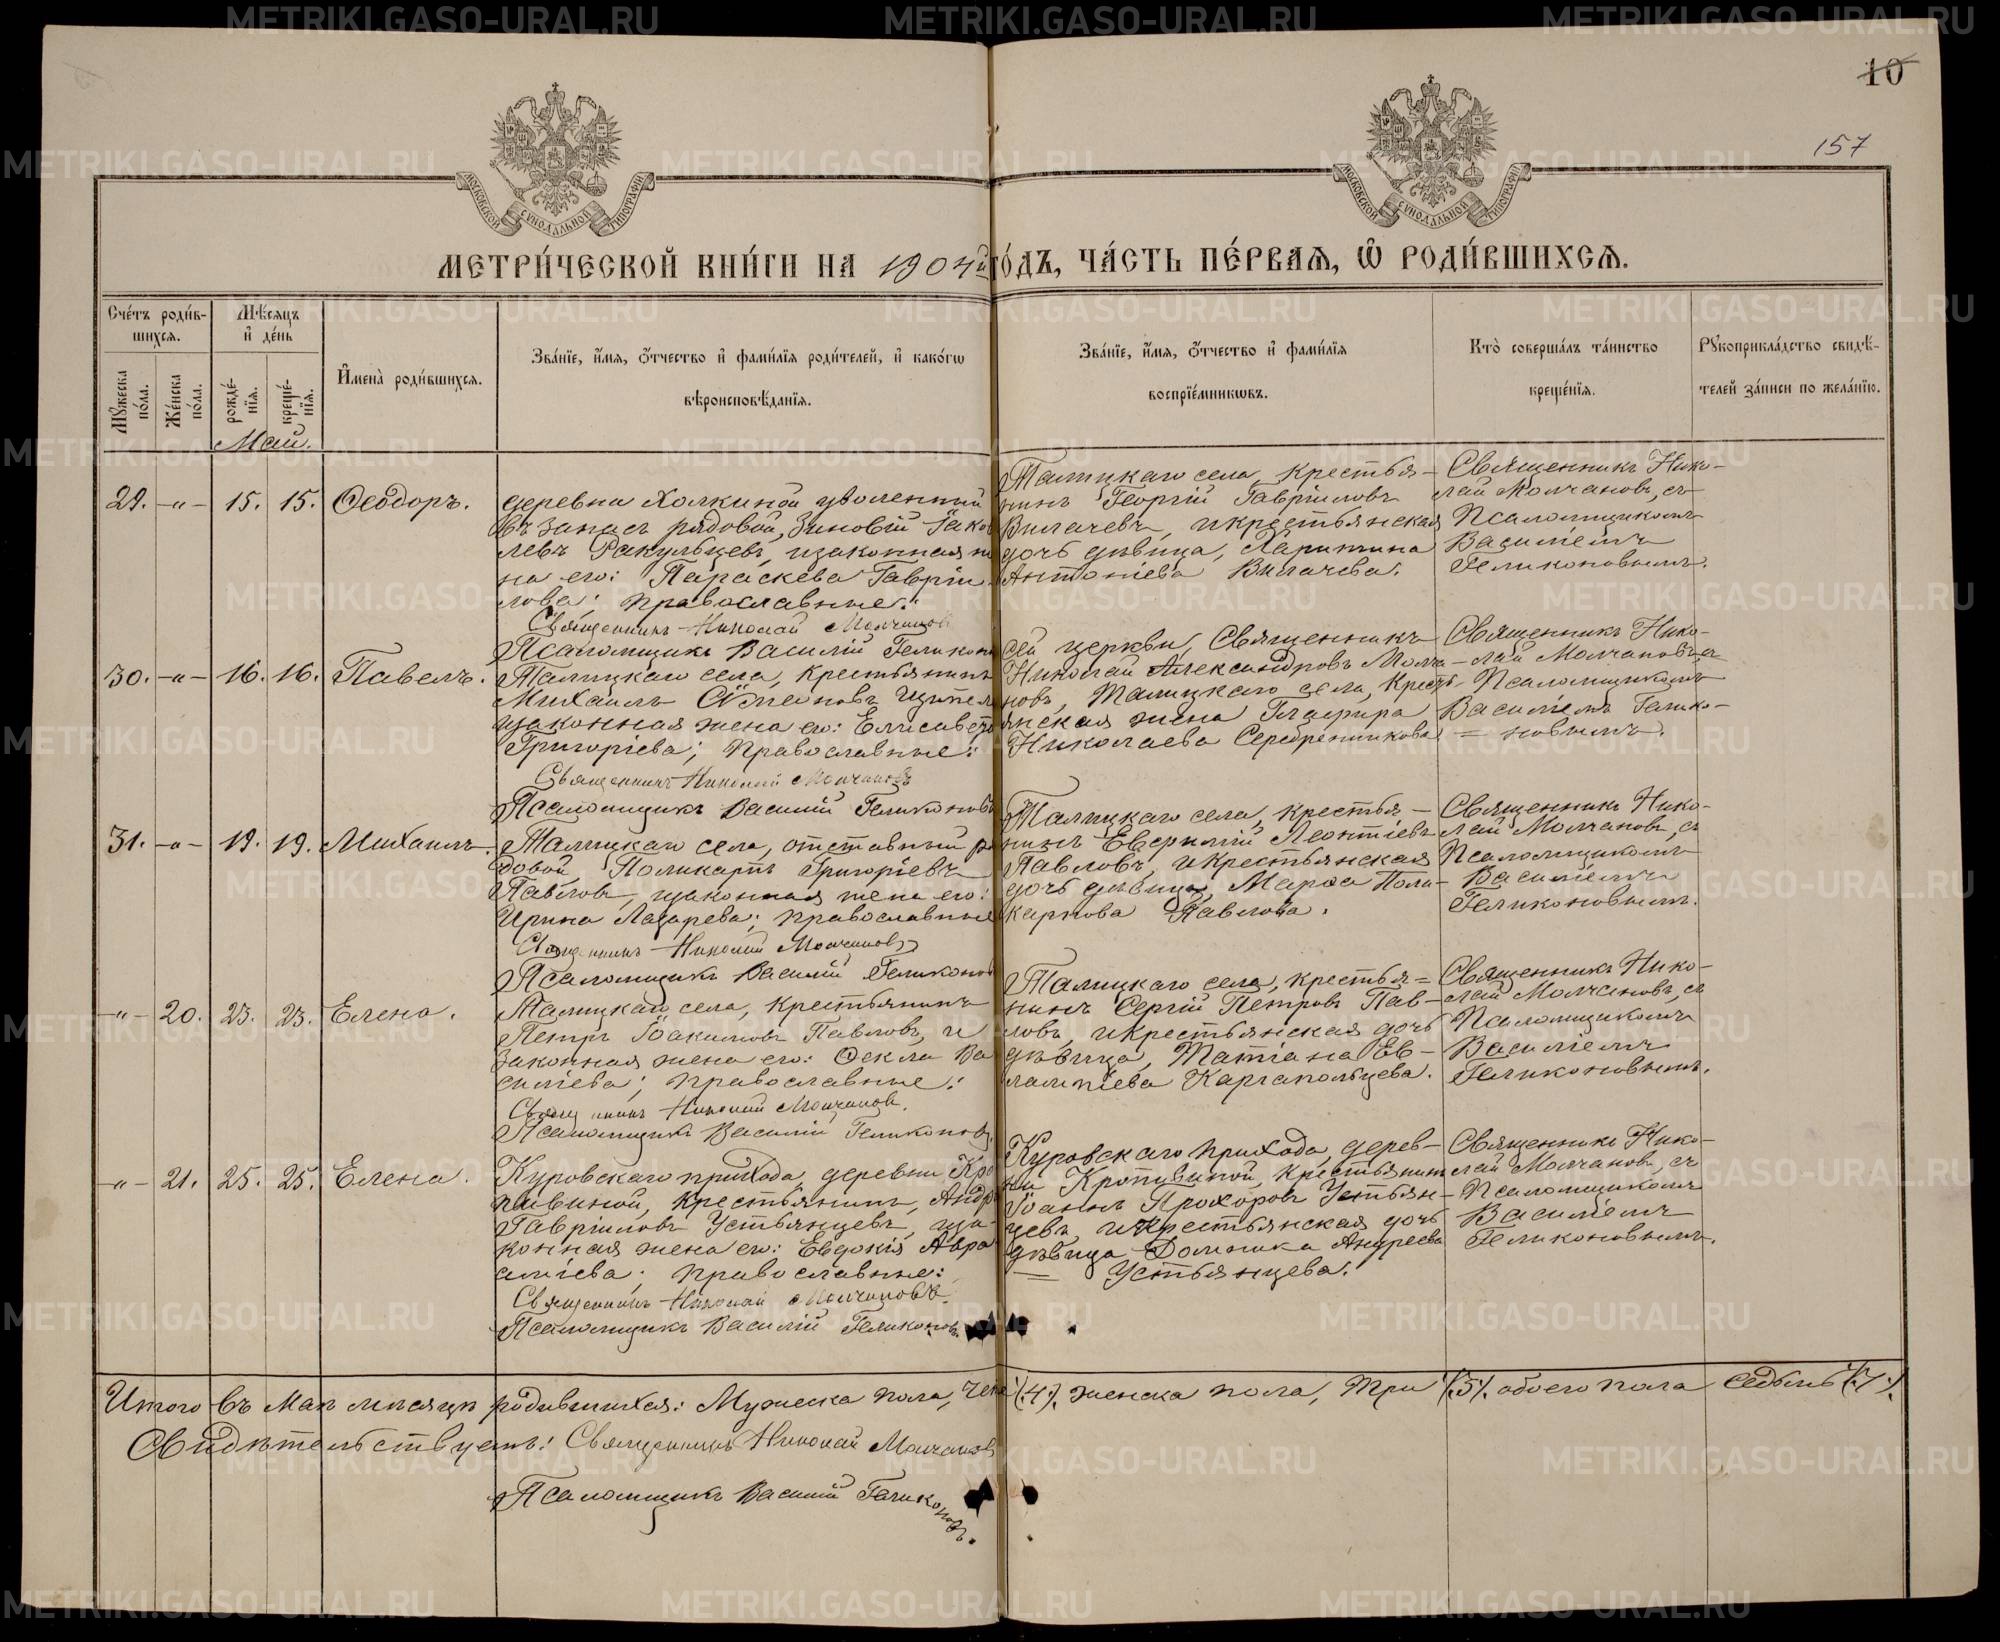 10
157
МОСКОВСКОЙ СѴНОДАЛЬНОЙ ТИПОГРАФІИ
МОСКОВСКОЙ СѴНОДАЛЬНОЙ ТИПОГРАФІИ
МЕТРИ́ЧЕСКОЙ КНИ́ГИ НА 1904й ГО́ДЪ, ЧА́СТЬ ПЕ́РВАѦ, Ѽ РОДИ́ВШИХСѦ.
Сче́тъ роди́в-
шихсѧ.
Мꙋ́жеска по́ла.
Же́нска по́ла.
Мѣ́сѧцъ и҆ де́нь
рожде́-
нїѧ.
креще́-
нїѧ.
И҆мена̀ роди́вшихсѧ.
Зва́нїе, и҆́мѧ, ѻ҆́тчество и҆ фами́лїѧ роди́телей, и҆ како́гѡ
вѣроисповѣ́данїѧ.
Зва́нїе, и҆́мѧ, ѻ҆́тчество и҆ фами́лїѧ
воспрїе́мникѡвъ.
Кто̀ соверша́лъ та́инство
креще́нїѧ.
Рꙋкоприкла́дство свидѣ́-
телей за́писи по жела́нїю.
Май.
29. -"- 15. 15. Ѳеодоръ.
деревни Холкиной уволенный
въ запасъ рядовой, Зиновій Іако
левъ Ракульцевъ, и законная же
на его: Параскева Гавріи
лова; православные:
Священникъ Николай Молчановъ
Псаломщикъ Василій Геликонов
Талицкаго села, крестья-
нинъ Георгій Гавріиловъ
Вилачевъ, и крестьянская
дочь дѣвица,
Антоніева Вилачева.
Священникъ Нико-
лай Молчановъ, съ
Псаломщикомъ
Василіемъ
Геликоновымъ.
30. -"- 16. 16. Павелъ.
Талицкаго села, крестьянинъ
Михаилъ
и законная жена его: Елисавета
Григоріева; православные:
Священникъ Николай Молчановъ
Псаломщикъ Василій Геликоновъ
сей церкви, Священникъ
Николай Александровъ Молча-
новъ, Талицкаго села, кресть-
янская жена Глафира
Николаева Серебренникова
Священникъ Нико-
лай Молчановъ, съ
Псаломщикомъ
Василіемъ Гелико-
= новымъ.
31. -"- 19. 19. Михаилъ.
Талицкаго села, отставный ря
довой, Поликарпъ Григоріевъ
Павловъ, и законная жена его:
Ирина Лазарева; православные
Священникъ Николай Молчановъ
Псаломщикъ Василій Геликонов
Талицкаго села, крестья-
нинъ Евсигній Леонтіевъ
Павловъ, и крестьянская
дочь дѣвица, Марѳа Поли-
карпова Павлова.
Священникъ Нико-
лай Молчановъ, съ
Псаломщикомъ
Василіемъ
Геликоновымъ.
-"- 20. 23. 23. Елена.
Талицкаго села, крестьянинъ
Петръ Іоакимовъ Павловъ, и
законная жена его: Ѳекла Ва
силіева; православные:
Священникъ Николай Молчановъ.
Псаломщикъ Василій Геликоновъ.
Талицкаго села, крестья=
нинъ Сергій Петровъ Пав-
ловъ, и крестьянская дочь
дѣвица, Татіана Ев-
лампіева Каргапольцева.
Священникъ Нико-
лай Молчановъ, съ
Псаломщикомъ
Василіемъ
Геликоновымъ.
-"- 21. 25. 25. Елена.
Куровскаго прихода, деревни Кро
пивиной, крестьянинъ, Андр
Гавріиловъ Устьянцевъ, и за-
конная жена его: Евдокія Авра
аміева; православные:
Священникъ Николай Молчановъ.
Псаломщикъ Василій Геликоновъ.
Куровскаго прихода, дерев-
ни Кропивиной, крестьянинъ
Іоаннъ Прохоровъ Устьян-
цевъ, и крестьянская дочь
дѣвица Домника Андреева
= Устьянцева.
Священникъ Нико-
лай Молчановъ, съ
Псаломщикомъ
Василіемъ
Геликоновымъ.
Итого въ маѣ мѣсяцѣ родившихся: Мужеска пола, четы (4), женска пола, три (3), обоего пола седмь (7).
Свидѣтельствуемъ: Священникъ Николай Молчановъ
Псаломщикъ Василій Геликоновъ.
METRIKI.GASO-URAL.RU